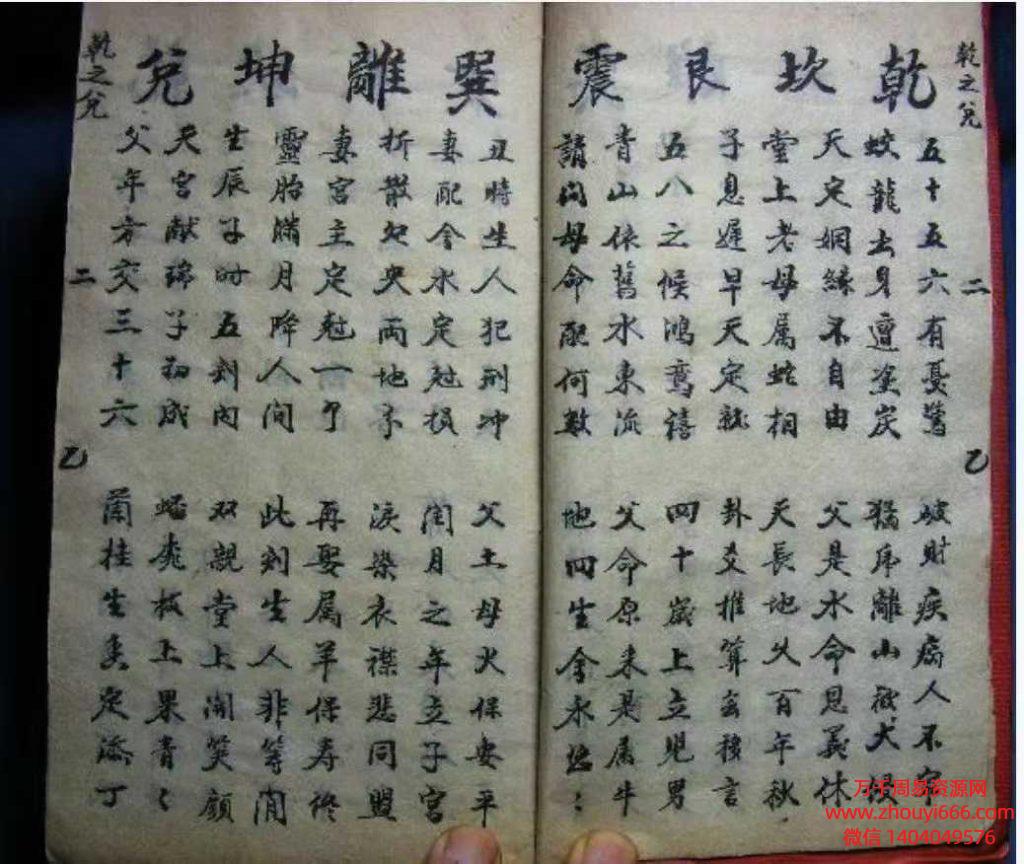 乾之兌
二
乙
乾 坎 艮 震
五十五六有憂驚
蛟龍去身遭塗炭
天定姻緣不自由
堂上老母属蛇相
子息遲早天定就
五八之候鴻鸾禧
青山依舊水東流
請问母命配何數
破財疾病人不寧
猛虎離山被犬
父是水命恩義休
天長地久百年秋
卦爻推算玄言
四十歲上立児男
父命原来是属牛
地四生金永悠〻
巽 離 坤 兌
丑時生人犯刑冲
妻配金水定尅損
折散夗央兩地分
妻宮主定尅一个
靈胎腊月降人间
生辰子时五刻内
天宮献瑞子初成
父年方交三十六
父土母火保安平
閏月之年立子宮
淚染衣襟悲同盟
再娶属羊保寿终
此刻生人非等閒
双親堂上開笑顔
蟠桃枝上果青〻
蘭桂生香定添丁
乾之兌
二
乙
万千周易资源网
www.zhouyi666.com
微信 1404049576